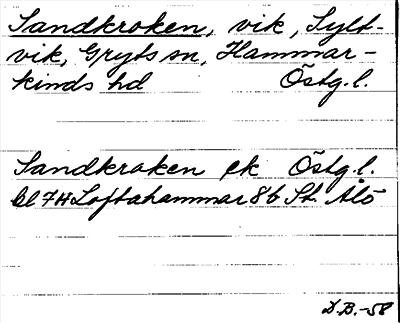 Sandkroken, vik, Sylt-
vik, Gryts sn, Hammar-
kinds hd Östg.l.
Sandkraken ek Östg.l.
bl 7H Loftahammar 8b St. Ålö
D.B.-58